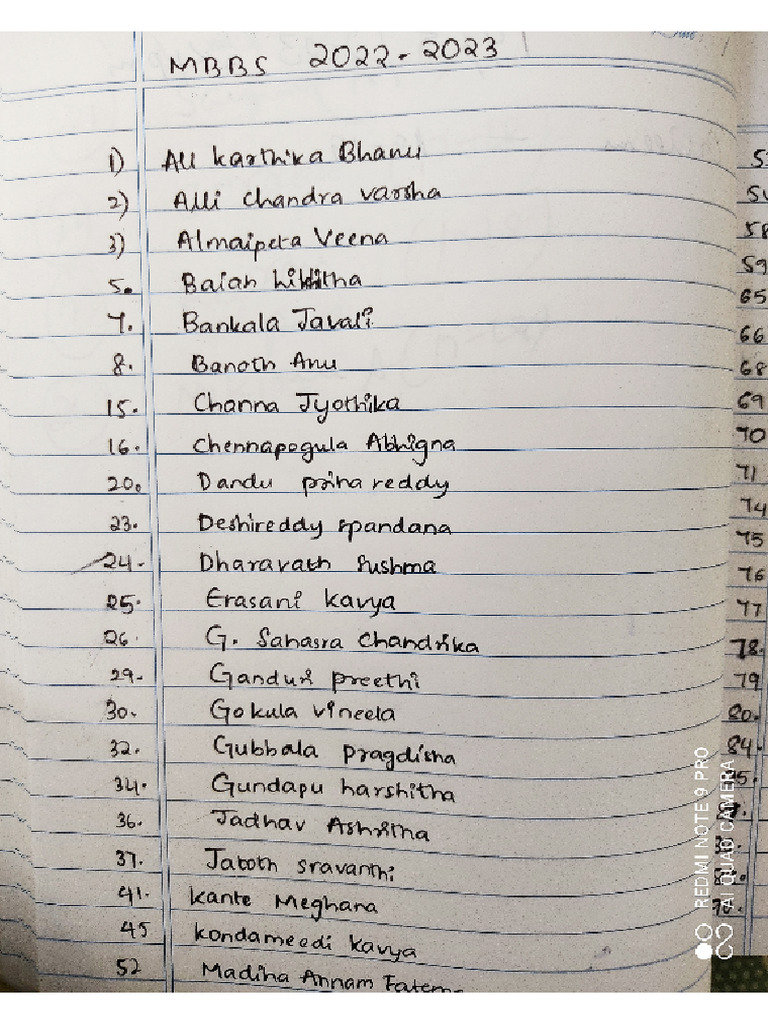 MBBS 2022-2023
1) All karthika Bhanu
2) Alli chandra varsha
3) Almaipeta Veena
5. Baiah likhitha
7. Bankala Javali
8. Banoth Anu
15. Channa Jyothika
16. chennapogula Abhigna
20. Dandu priha reddy
23. Deshireddy spandana
24. Dharavath Sushma
25. Erasani kavya
26. G. Sahasra Chandrika
29. Ganduri preethi
30. Gokula vineela
32. Gubbala pragdisha
34. Gundapu harshitha
36. Jadhav Ashritha
37. Jatoth sravanthi
41. kante Meghana
45 kondameedi kavya
52 Madiha Annam Fatem
58
59
65
66
68
69
70
71
74
75
76
77
78.
79
80.
84.
REDMI NOTE 9 PRO
AI QUAD CAMERA